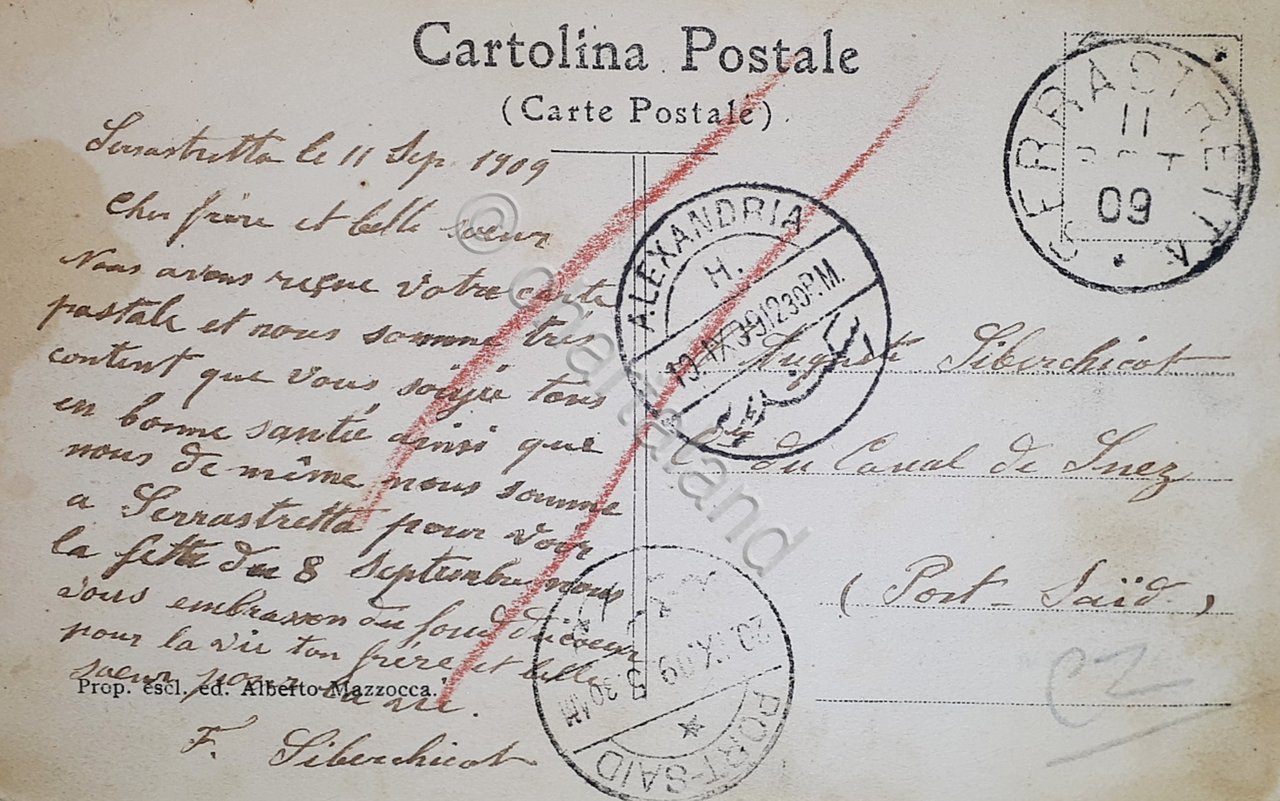 Cartolina Postale
(Carte Postale)
Serrastretta le 11 Sep. 1909
Cher frère et belle sœur
Nous avons reçue votre carte
postale et nous somme très
content que vous soiyié tous
en bonne santié ainsi que
nous de même nous somme
a Serrastretta pour voir
la fette du 8 Septembre nous
vous embrasson du fond du cœur
pour la vie ton frère et belle
sœur pour la vie.
F. Siberchicot
Prop. escl. ed. Alberto Mazzocca.
SERRASTRETTA
11
09
ALEXANDRIA
H.
19.IX.09.12 30 P.M.
اسكندرية
Auguste Siberchicot
du Canal de Suez
(Port-Saïd)
20.IX.09. 5 30 AM
PORT-SAID
CZ
© chartaland